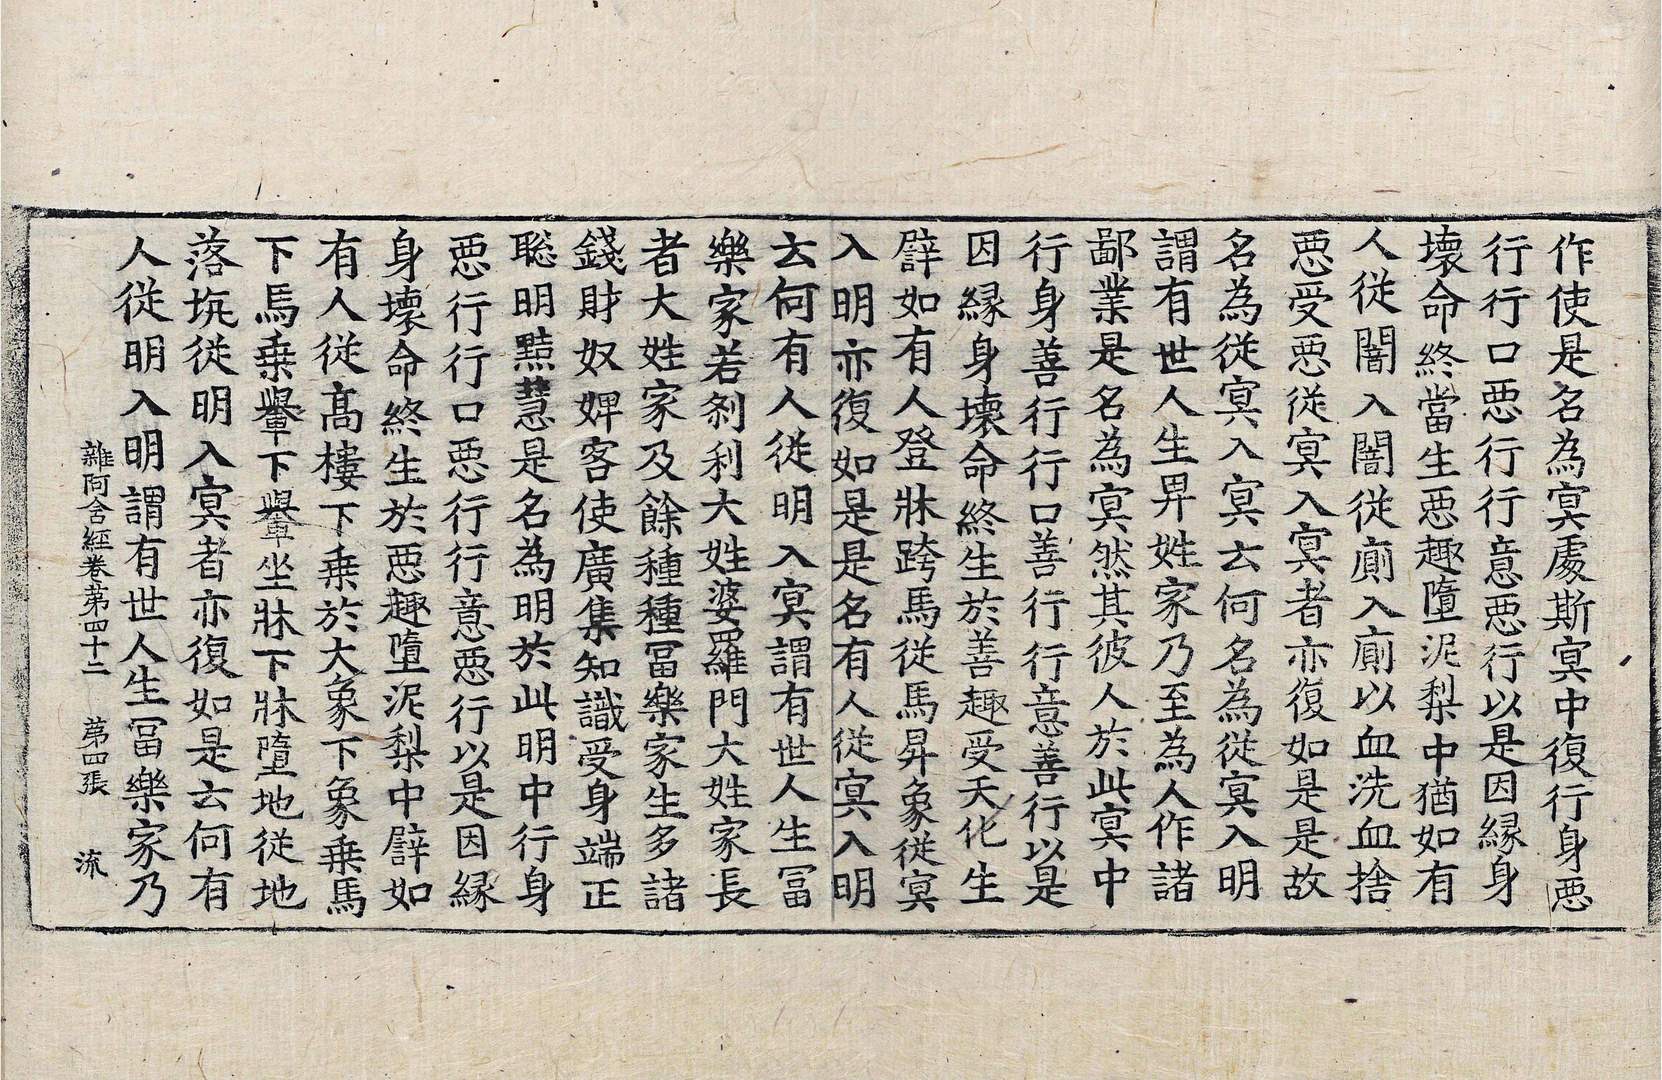 作使是名為冥處斯冥中復行身惡
行行口惡行行意惡行以是因緣身
壞命終當生惡趣墮泥梨中猶如有
人從闇入闇從廁入廁以血洗血捨
惡受惡從冥入冥者亦復如是是故
名為從冥入冥云何名為從冥入明
謂有世人生畀姓家乃至為人作諸
鄙業是名為冥然其彼人於此冥中
行身善行行口善行行意善行以是
因緣身壞命終生於善趣受天化生
譬如有人登牀跨馬從馬昇象從冥
入明亦復如是是名有人從冥入明
云何有人從明入冥謂有世人生冨
樂家若剎利大姓婆羅門大姓家長
者大姓家及餘種種冨樂家生多諸
錢財奴婢客使廣集知識受身端正
聦明黠慧是名為明於此明中行身
惡行行口惡行行意惡行以是因緣
身壞命終生於惡趣墮泥梨中譬如
有人從髙樓下乗於大象下象乗馬
下馬乗轝下轝坐牀下牀墮地從地
落坑從明入冥者亦復如是云何有
人從明入明謂有世人生冨樂家乃
雜阿含經卷第四十二 第四張 流